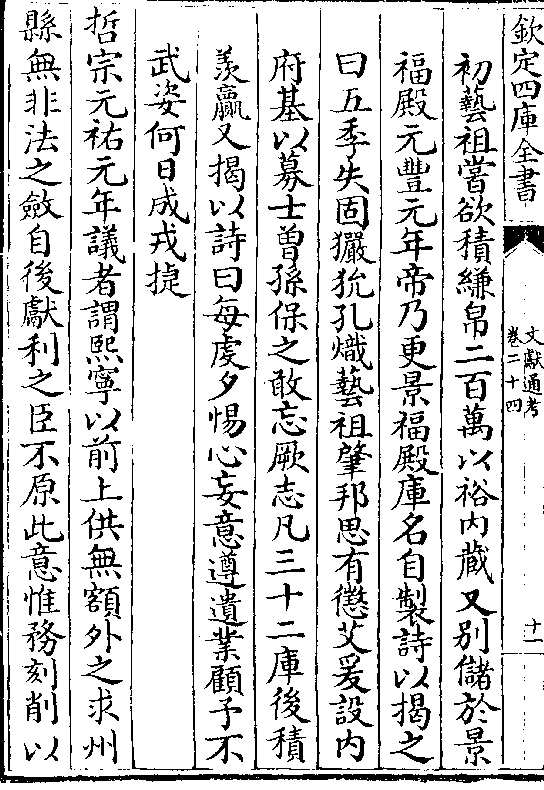 欽定四庫全書
文獻通考
卷二十四
十一
初藝祖嘗欲積縑帛二百萬以裕內蔵又别儲於景
福殿元豐元年帝乃更景福殿庫名自製詩以揭之
曰五季失固玁狁孔熾藝祖肇邦思有懲艾爰設内
府基以募士曽孫保之敢忘厥志凡三十二庫後積
羨贏又揭以詩曰每䖍夕惕心妄意遵遺業顧予不
武姿何日成戎捷
哲宗元祐元年議者謂熙寧以前上供無額外之求州
縣無非法之斂自後獻利之臣不原此意惟務刻削以